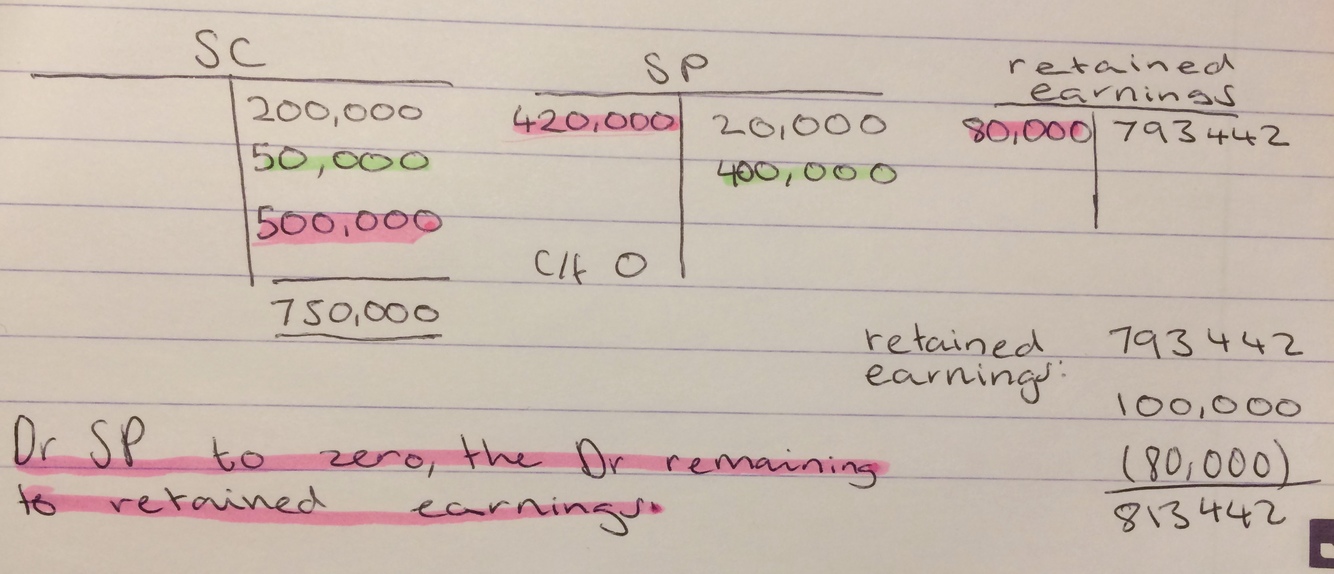 SC
200,000
50,000
500,000
750,000
SP
420,000 20,000
400,000
C/f 0
retained
earnings
80,000 793442
retained 793442
earnings:
100,000
(80,000)
813442
Dr SP to zero, the Dr remaining
to retained earnings.